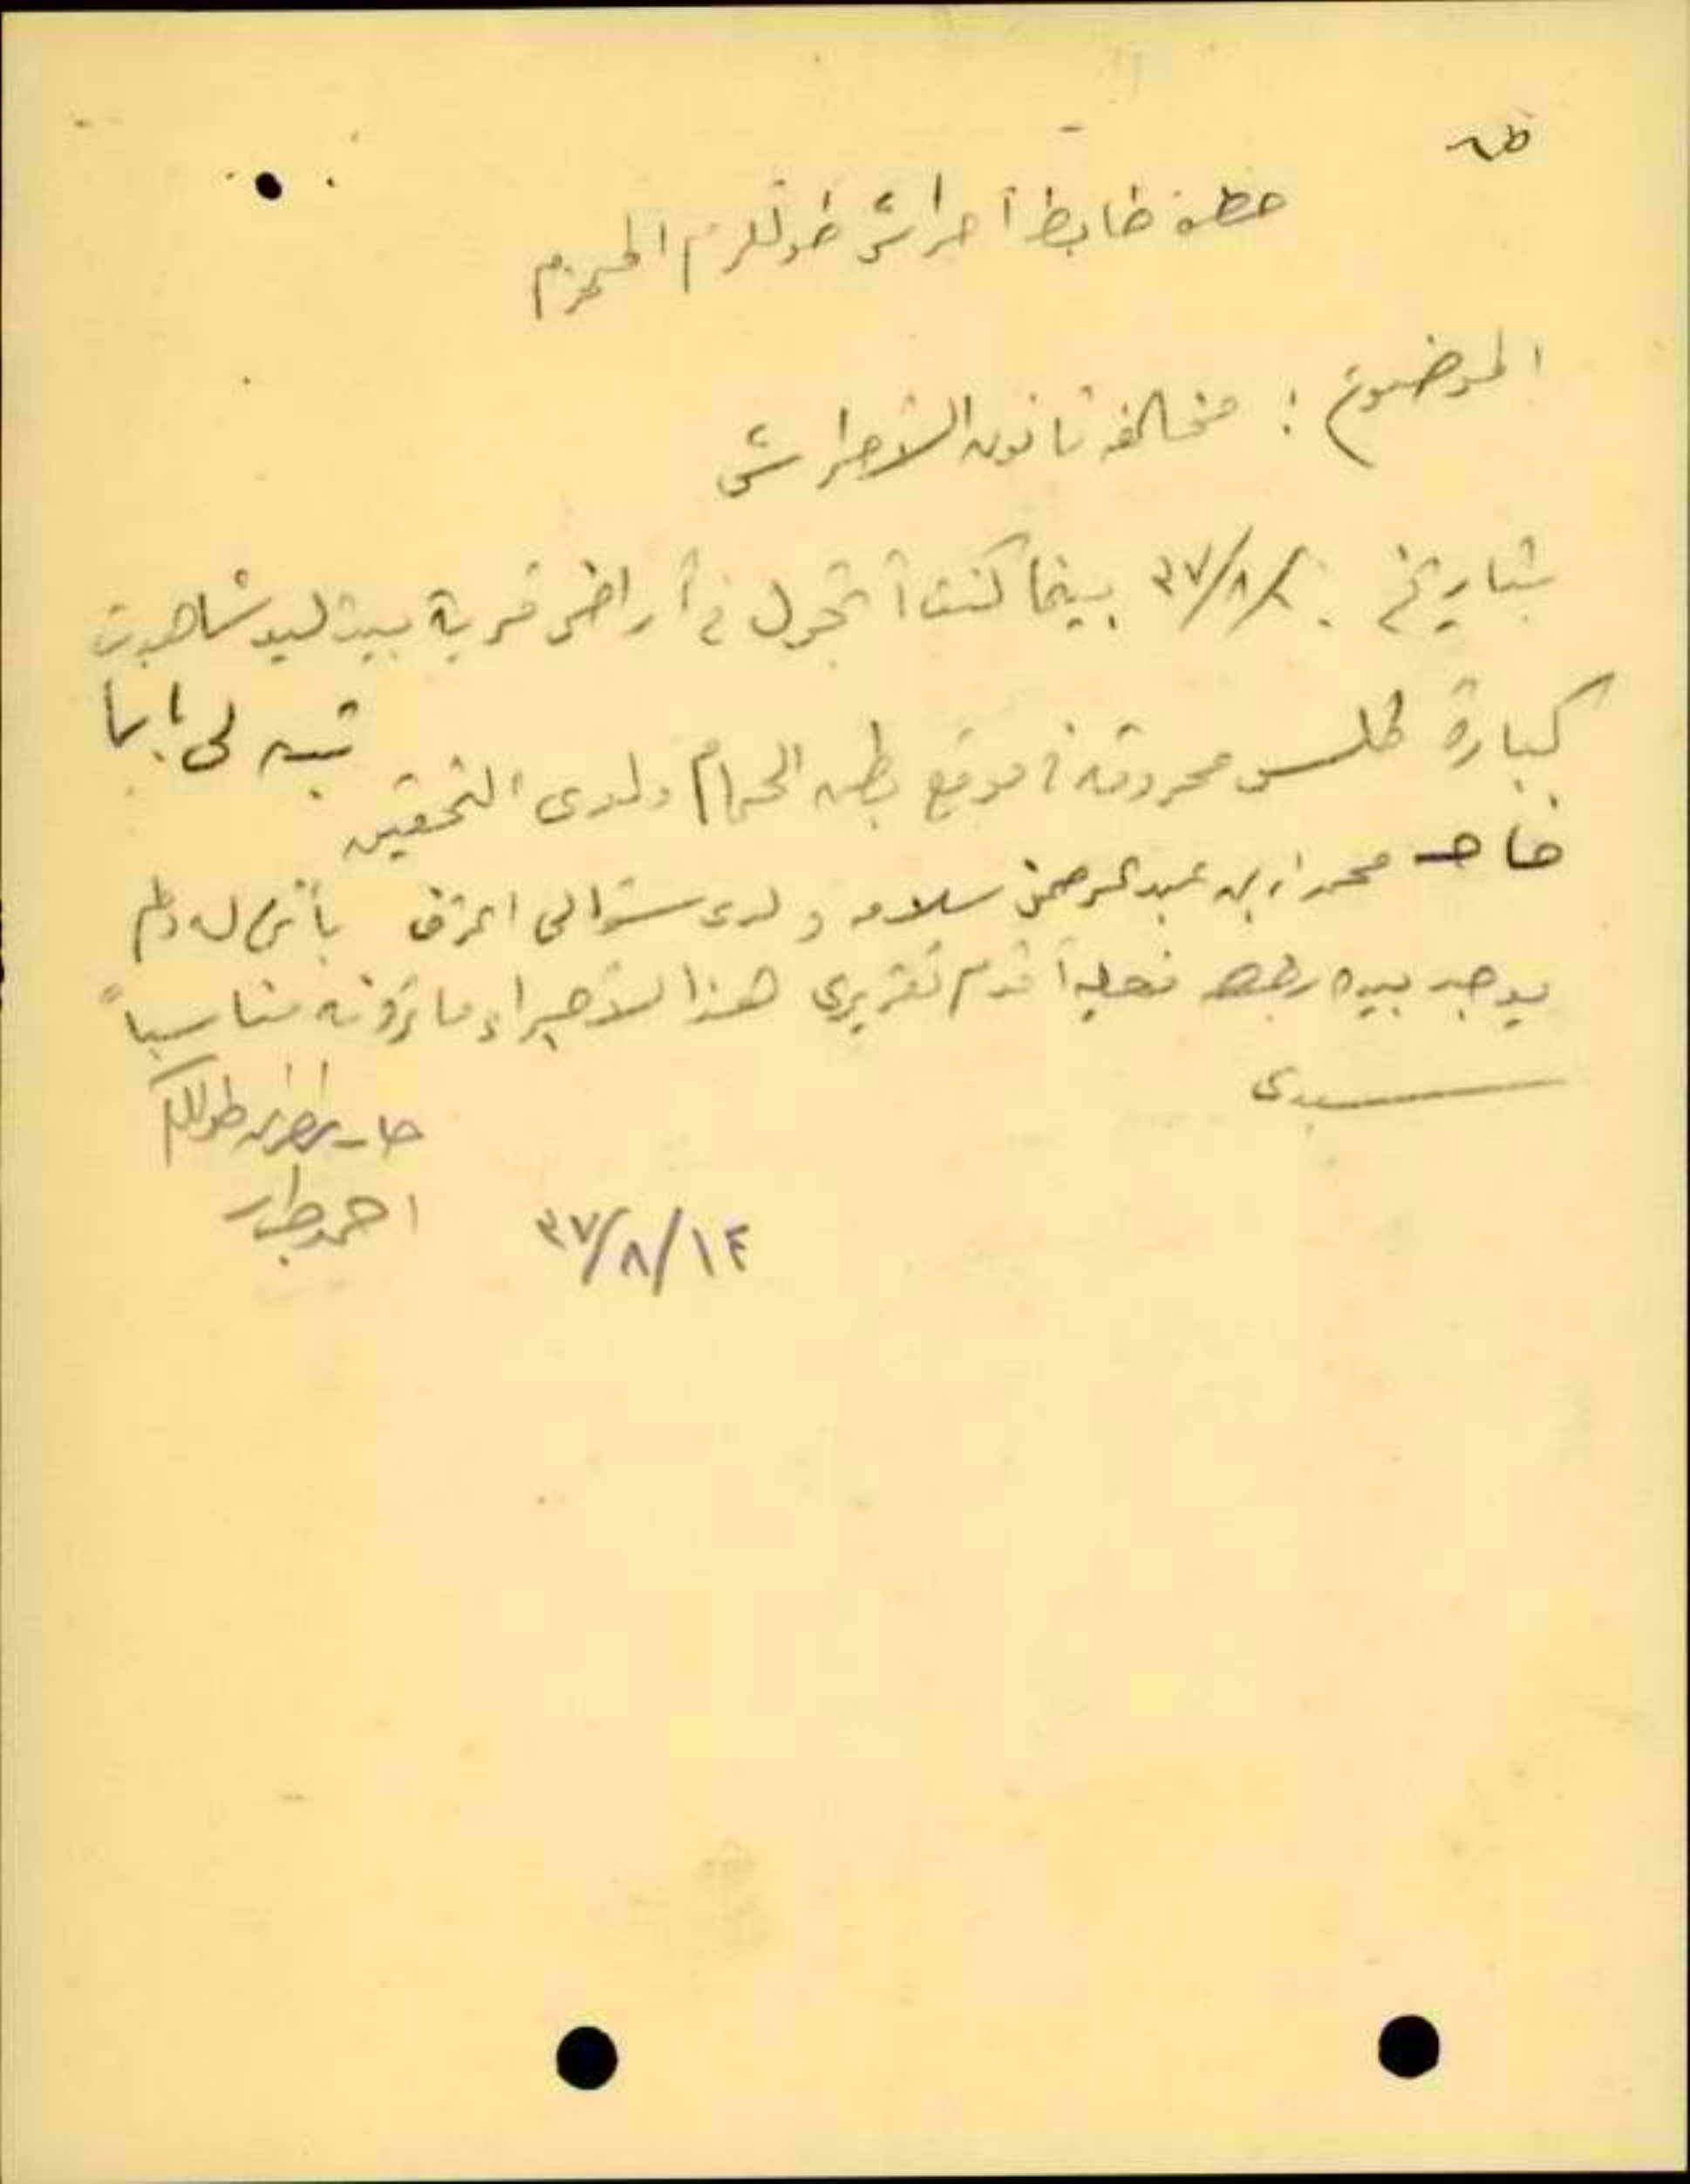 حضرة ضابط أحراش طولكرم المحترم
الموضوع : مخالفة قانون الأحراش
بتاريخ ٣٧/٨/ بينما كنت أتجول في أراضي قرية بيت ليد شاهدت
كبارة كلس محروقة في موقع بطن الحمام ولدى التحقيق تبين لي بأنها
خاصة محمد ابن عبد الرحمن سلامه ولدى سؤالي اعترف بأنها له ولم
يوجد بيده رخصة فعليه أقدم تقريري هذا لإجراء ما ترونه مناسباً
سيدي
طولكرم
احمد
٣٧/٨/١٤